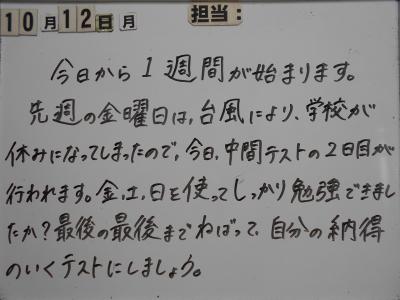 10月12日月 担当:
今日から1週間が始まります。
先週の金曜日は,台風により,学校が
休みになってしまったので,今日,中間テストの2日目が
行われます。金,土,日を使ってしっかり勉強できまし
たか?最後の最後までねばって,自分の納得
のいくテストにしましょう。